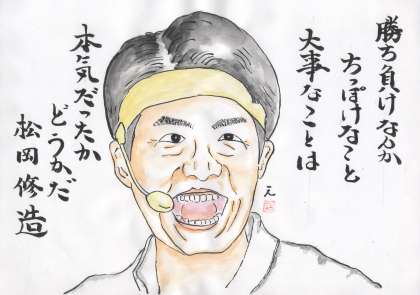 勝ち負けなんか
ちっぽけなこと
大事なことは
本気だったか
どうかだ
松岡修造
え